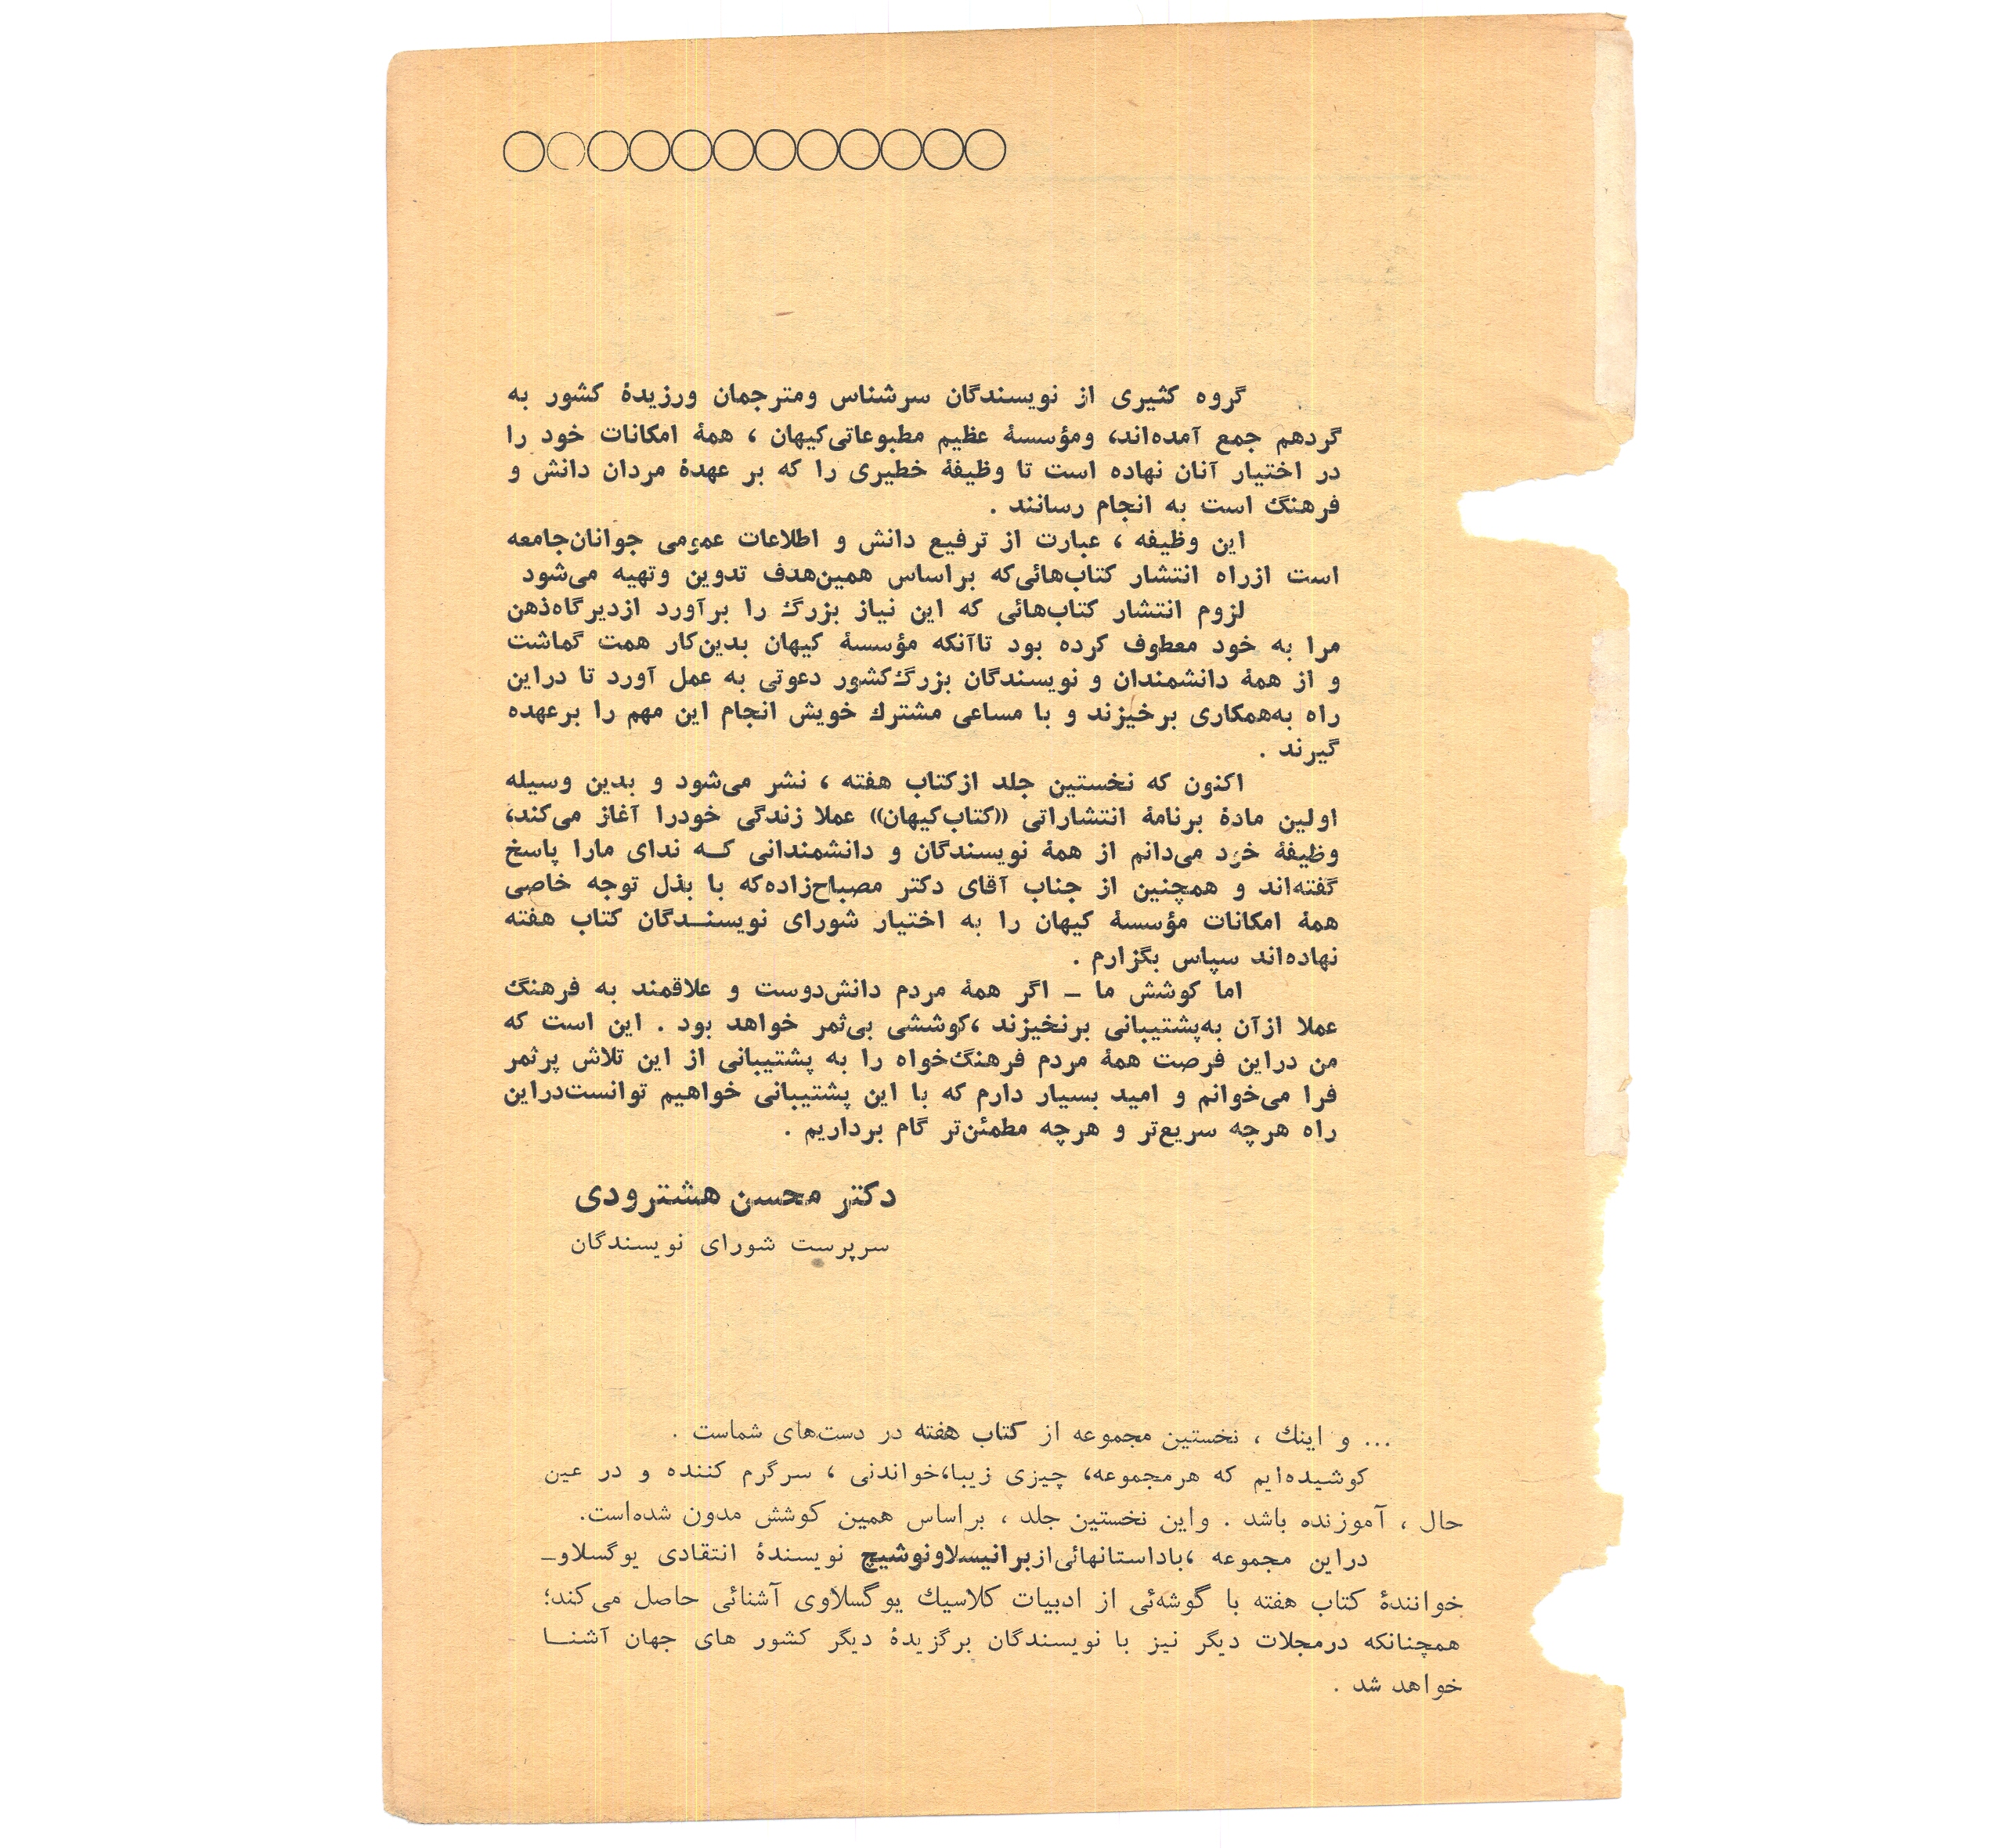 گروه کثیری از نویسندگان سرشناس ومترجمان ورزیدهٔ کشور به
گردهم جمع آمده‌اند، ومؤسسهٔ عظیم مطبوعاتی‌کیهان ، همهٔ امکانات خود را
در اختیار آنان نهاده است تا وظیفهٔ خطیری را که بر عهدهٔ مردان دانش و
فرهنگ است به انجام رسانند .
این وظیفه ، عبارت از ترفیع دانش و اطلاعات عمومی جوانان‌جامعه
است ازراه انتشار کتاب‌هائی‌که براساس همین‌هدف تدوین وتهیه می‌شود
لزوم انتشار کتاب‌هائی که این نیاز بزرگ را برآورد ازدیرگاه‌ذهن
مرا به خود معطوف کرده بود تاآنکه مؤسسهٔ کیهان بدین‌کار همت گماشت
و از همهٔ دانشمندان و نویسندگان بزرگ‌کشور دعوتی به عمل آورد تا دراین
راه به‌همکاری برخیزند و با مساعی مشترك خویش انجام این مهم را برعهده
گیرند .
اکنون که نخستین جلد ازکتاب هفته ، نشر می‌شود و بدین وسیله
اولین مادهٔ برنامهٔ انتشاراتی ((کتاب‌کیهان)) عملا زندگی خودرا آغاز می‌کند،
وظیفهٔ خود می‌دانم از همهٔ نویسندگان و دانشمندانی کـه ندای مارا پاسخ
گفته‌اند و همچنین از جناب آقای دکتر مصباح‌زاده‌که با بذل توجه خاصی
همهٔ امکانات مؤسسهٔ کیهان را به اختیار شورای نویسنـدگان کتاب هفته
نهاده‌اند سپاس بگزارم .
اما کوشش ما ـ اگر همهٔ مردم دانش‌دوست و علاقمند به فرهنگ
عملا ازآن به‌پشتیبانی برنخیزند ،کوششی بی‌ثمر خواهد بود . این است که
من دراین فرصت همهٔ مردم فرهنگ‌خواه را به پشتیبانی از این تلاش پرثمر
فرا می‌خوانم و امید بسیار دارم که با این پشتیبانی خواهیم توانست‌دراین
راه هرچه سریع‌تر و هرچه مطمئن‌تر گام برداریم .
دکتر محسن هشترودی
سرپرست شورای نویسندگان
... و اینك ، نخستین مجموعه از کتاب هفته در دست‌های شماست .
کوشیده‌ایم که هرمجموعه، چیزی زیبا،خواندنی ، سرگرم کننده و در عین
حال ، آموزنده باشد . واین نخستین جلد ، براساس همین کوشش مدون شده‌است.
دراین مجموعه ،باداستانهائی‌ازبرانیسلاونوشیچ نویسندهٔ انتقادی یوگسلاوـ
خوانندهٔ کتاب هفته با گوشه‌ئی از ادبیات کلاسیك یوگسلاوی آشنائی حاصل می‌کند؛
همچنانکه درمجلات دیگر نیز با نویسندگان برگزیدهٔ دیگر کشور های جهان آشنـا
خواهد شد .